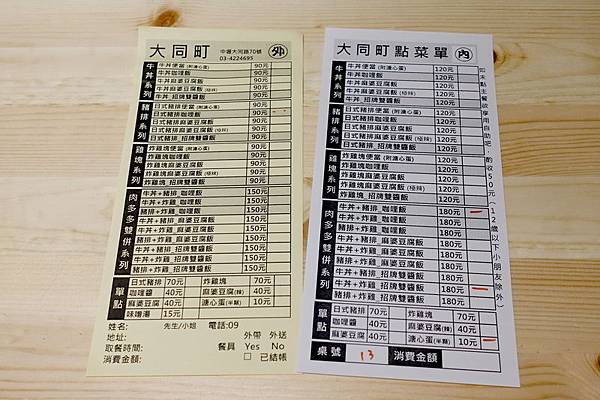 大同町 中壢大同路70號 外
03-4224695
牛丼系列
牛丼便當(附溏心蛋) 90元
牛丼咖哩飯 90元
牛丼麻婆豆腐飯 90元
牛丼麻婆豆腐飯(極辣) 90元
牛丼_招牌雙醬飯 90元
豬排系列
日式豬排便當(附溏心蛋) 90元
日式豬排咖哩飯 90元
日式豬排麻婆豆腐飯 90元
日式豬排麻婆豆腐飯(極辣) 90元
日式豬排_招牌雙醬飯 90元
雞塊系列
炸雞塊便當(附溏心蛋) 90元
炸雞塊咖哩飯 90元
炸雞塊麻婆豆腐飯 90元
炸雞塊麻婆豆腐飯(極辣) 90元
炸雞塊_招牌雙醬飯 90元
肉多多雙併系列
牛丼+豬排_咖哩飯 150元
牛丼+炸雞_咖哩飯 150元
豬排+炸雞_咖哩飯 150元
牛丼+豬排_麻婆豆腐飯 150元
牛丼+炸雞_麻婆豆腐飯 150元
豬排+炸雞_麻婆豆腐飯 150元
牛丼+豬排_招牌雙醬飯 150元
牛丼+炸雞_招牌雙醬飯 150元
豬排+炸雞_招牌雙醬飯 150元
單點
日式豬排 70元 炸雞塊 70元
咖哩醬 40元 麻婆豆腐(辣) 40元
麻婆豆腐 40元 溏心蛋(半顆) 10元
味噌湯 15元
姓名: 先生/小姐 電話:09
地址: 外帶 外送
取餐時間: 餐具 Yes No
消費金額: □ 已結帳
大同町點菜單 內
牛丼系列
牛丼便當(附溏心蛋) 120元
牛丼咖哩飯 120元
牛丼麻婆豆腐飯 120元
牛丼麻婆豆腐飯(極辣) 120元
牛丼_招牌雙醬飯 120元
豬排系列
日式豬排便當(附溏心蛋) 120元
日式豬排咖哩飯 120元
日式豬排麻婆豆腐飯 120元
日式豬排麻婆豆腐飯(極辣) 120元
日式豬排_招牌雙醬飯 120元
雞塊系列
炸雞塊便當(附溏心蛋) 120元
炸雞塊咖哩飯 120元
炸雞塊麻婆豆腐飯 120元
炸雞塊麻婆豆腐飯(極辣) 120元
炸雞塊_招牌雙醬飯 120元
肉多多雙併系列
牛丼+豬排_咖哩飯 180元
牛丼+炸雞_咖哩飯 180元
豬排+炸雞_咖哩飯 180元
牛丼+豬排_麻婆豆腐飯 180元
牛丼+炸雞_麻婆豆腐飯 180元
豬排+炸雞_麻婆豆腐飯 180元
牛丼+豬排_招牌雙醬飯 180元
牛丼+炸雞_招牌雙醬飯 180元
豬排+炸雞_招牌雙醬飯 180元
單點
日式豬排 70元 炸雞塊 70元
咖哩醬 40元 麻婆豆腐(辣) 40元
麻婆豆腐 40元 溏心蛋(半顆) 10元
桌號 13 消費金額
如未點主餐欲享用自助吧,酌收50元(12歲以下小朋友除外)